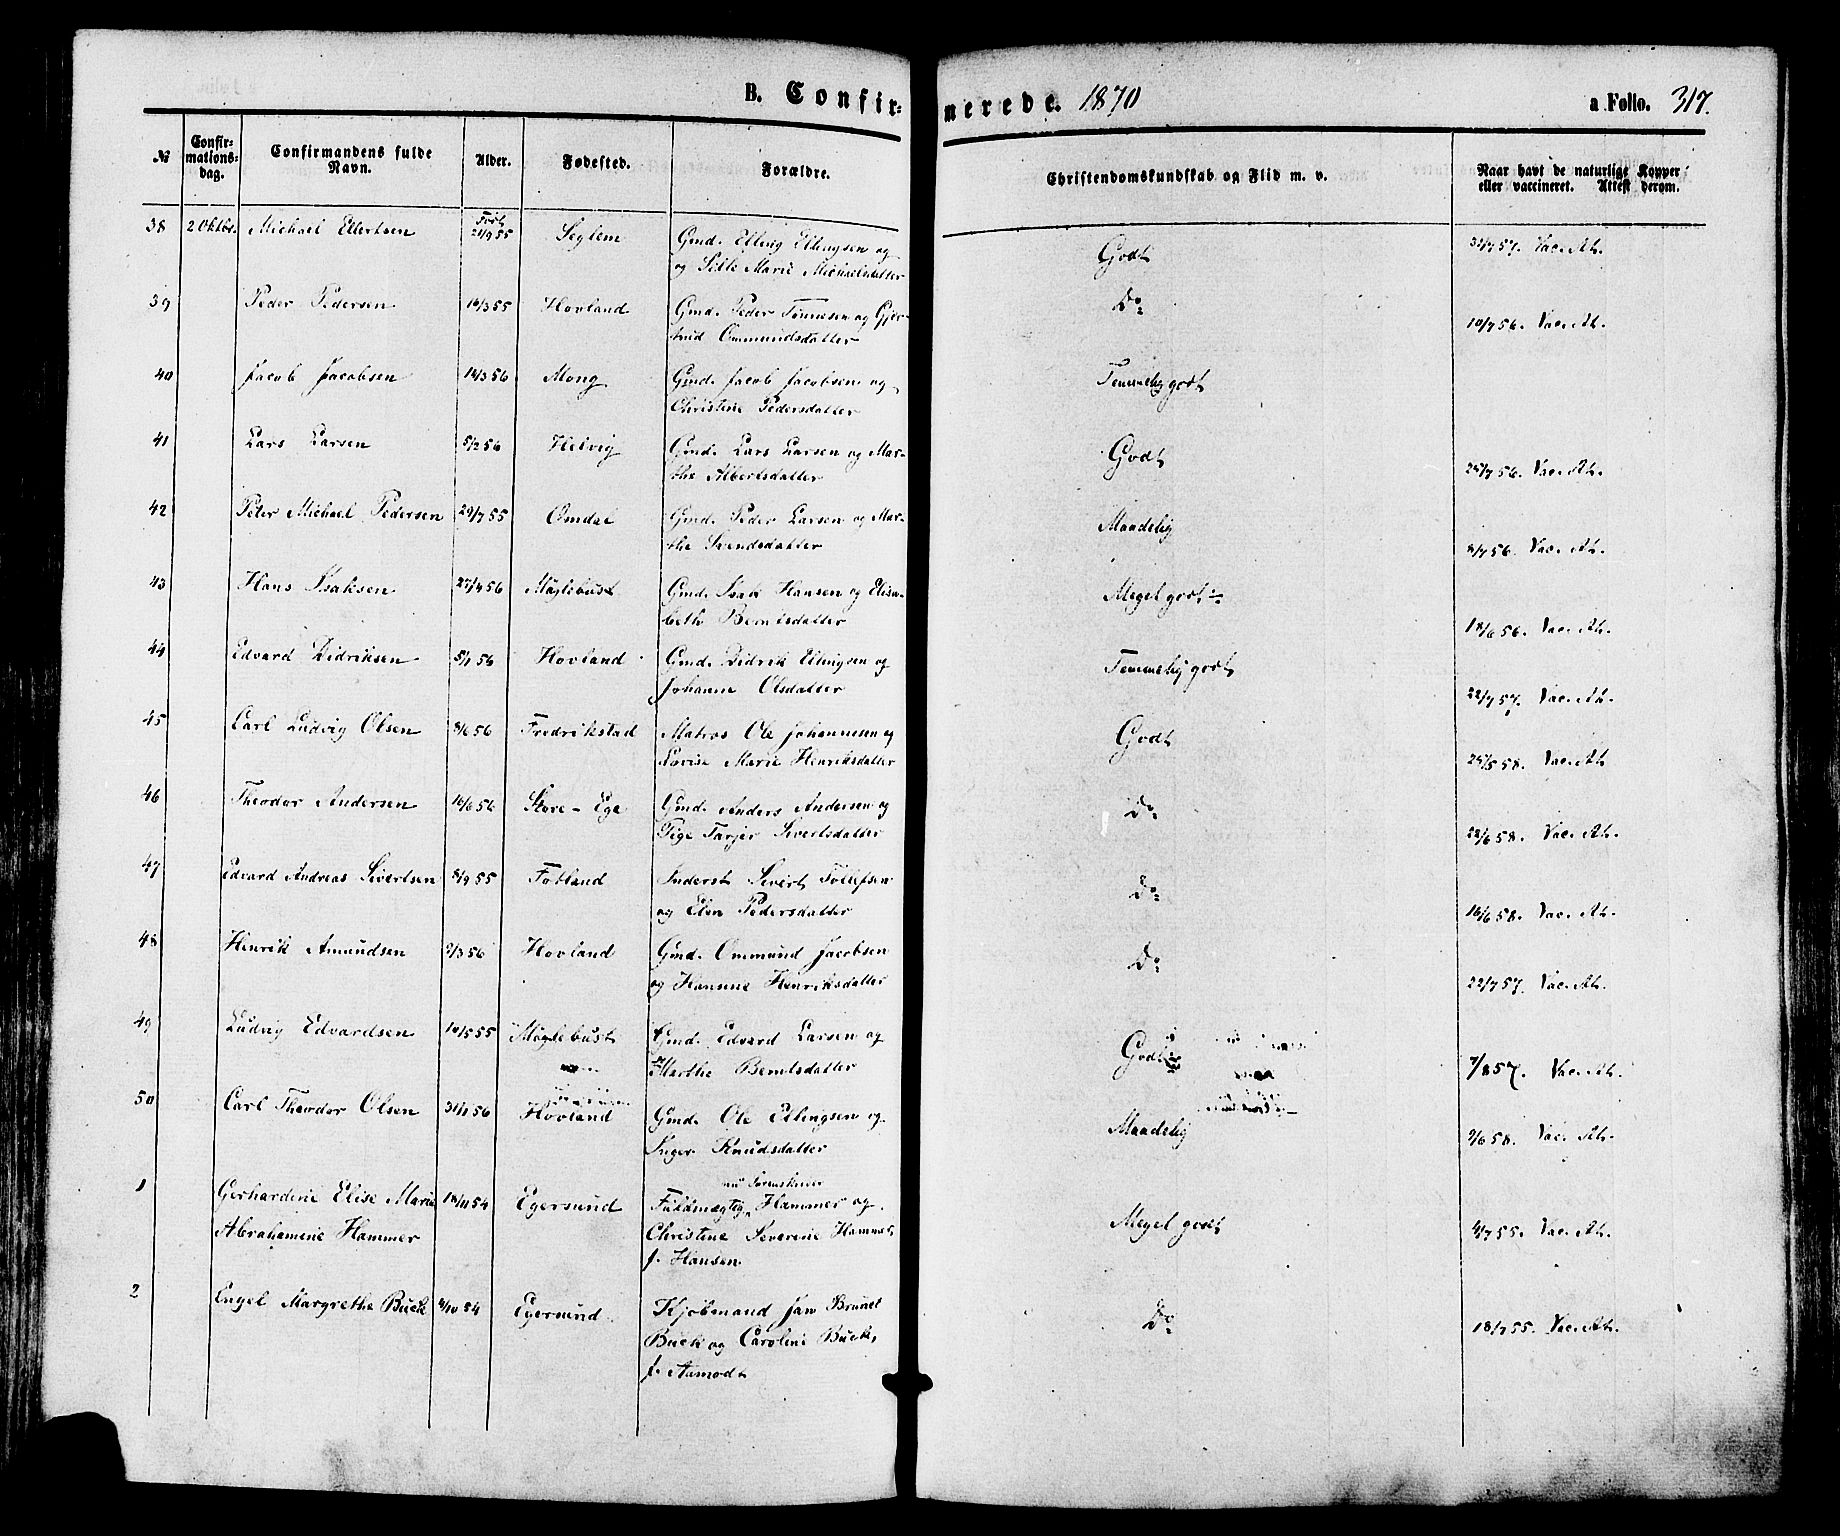 B. Confir=
merede. 1870
a Folio. 317.
№ Confir=mations=dag. Confirmandens fulde Navn. Alder. Fødested. Forældre. Christendomskundskab og Flid m. v. Naar havt de naturlige Kopper eller vaccineret. Attest derom.
38 2 Oktbr. Michael Ellertsen Født 21/9 55 Seglem Gmd. Elling Ellingsen og Godt 31/7 57. Vac. At.
og Sille Marie Michaelsdatter
39 Peder Pedersen 16/3 55 Hovland Gmd. Peder Tønnesen og Gjer= Do 10/7 56. Vac. At.
trud Ommundsdatter
40 Jacob Jacobsen 14/3 56 Mong Gmd. Jacob Jacobsen og Temmelig godt
Christine Pedersdatter
41 Lars Larsen 5/2 56 Helvig Gmd. Lars Larsen og Mar= Godt 24/7 56. Vac. At.
the Albertsdatter
42 Peter Michael Pedersen 29/7 55 Omdal Gmd. Peder Larsen og Mar= Maadelig 8/7 56. Vac. At.
the Svendsdatter
43 Hans Isaksen 27/4 56 Møglebust Gmd. Isak Hansen og Elisa= Meget godt 18/6 56. Vac. At.
beth Berntsdatter
44 Edvard Didriksen 5/1 56 Hovland Gmd. Didrik Ellingsen og Temmelig godt 22/7 57. Vac. At.
Johanne Olsdatter
45 Carl Ludvig Olsen 8/6 56 Fredrikstad Matros Ole Johannesen og Godt 25/5 58. Vac. At
Lovise Marie Henriksdatter
46 Theodor Andersen 16/6 56 Store-Ege Gmd. Anders Andersen og Do 22/6 58. Vac. At.
Pige Tarjer Sivertsdatter
47 Edvard Andreas Sivertsen 8/9 55 Fotland Inderst Sivert Tollefsen Do 16/6 58. Vac. At.
og Elen Pedersdatter
48 Henrik Amundsen 9/3 56 Hovland Gmd. Ommund Jacobsen Do 22/7 57. Vac. At.
og Hansine Henriksdatter
49 Ludvig Edvardsen 10/5 55 Møglebust Gmd. Edvard Larsen og Godt 7/8 57. Vac. At.
Marthe Berntsdatter
50 Carl Theodor Olsen 31/1 56 Hovland Gmd. Ole Ellingsen og Maadelig 9/6 58. Vac. At.
Inger Knudsdatter
1 Gerhardine Elise Marie 18/11 54 Egersund Fuldmægtig Hammer og Meget godt 4/7 55. Vac. At.
Abrahamine Hammer Christine Severine Hammer
f. Hansen
2 Engel Margrethe Buck 8/10 54 Egersund Kjøbmand Jan Brunet Do 18/7 55. Vac. At.
Buck og Caroline Buck,
f. Aamodt